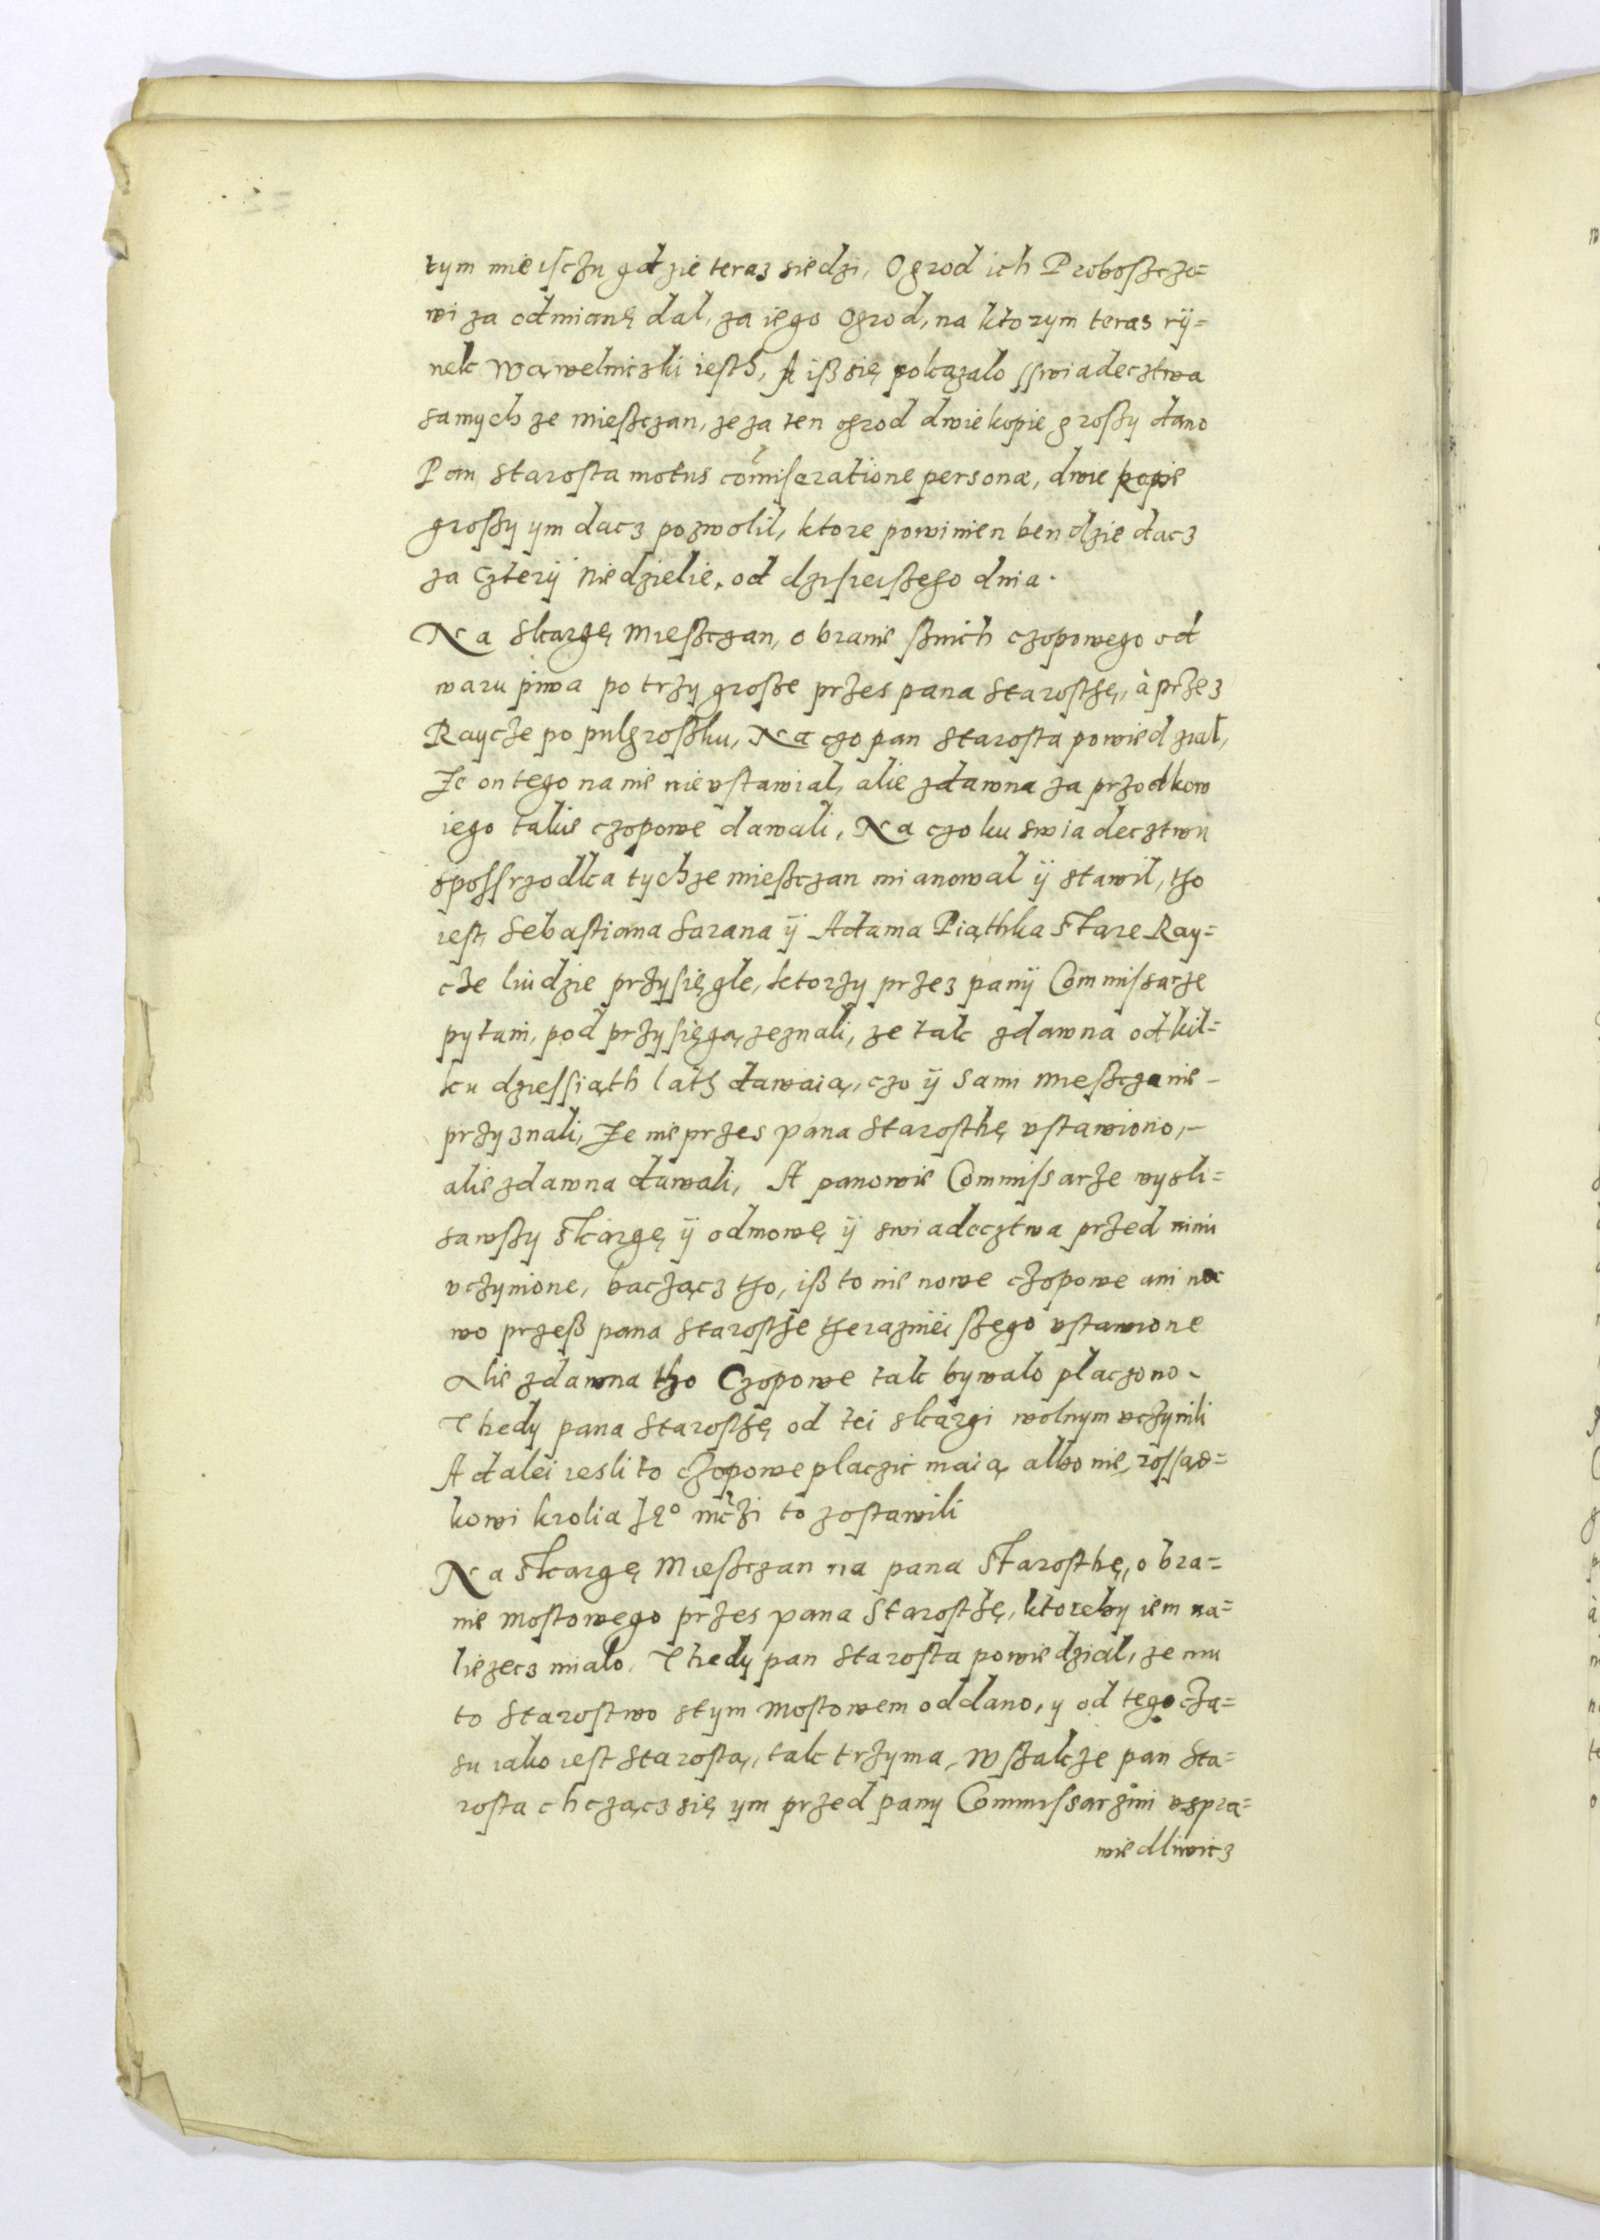 tym mieisczu gdzie teraz siedzi, Ogrod ich Proboszczo=
wi za odmianę dal, za iego Ogrod, na ktorym teras rÿ=
nek Wąwelniczski iesth, A isz się pokazalo sswiadecztwa
samych ze mieszczan, ze za ten ogrod dwie kopie groszy dano
Pan Starosta motus commiseratione personæ, dwie kopie
groszy ym dacz pozwolil, ktore powinien bendzie dacz
za czterÿ Niedzielie, od dzisieiszego dnia.
Na Skargę Mieszczan, o branie sznich czopowego od
waru piwa po trzy grosze przes pana Starosthę, à przez
Raycze po pulgroszku, Na czo pan Starosta powiedzial,
Ze on tego na nie nie ustawial, alie zdawna za przodkow
iego takie czopowe dawali, Na czo ku swiadecztwu
spossrzodka tychze mieszczan mianowal ÿ stawil, tho
iest, Sebastiana Sarana ÿ Adama Piąthka Stare Ray=
cze liudzie przysięgle, ktorzy przez panÿ Commissarze
pytani, pod przysięgą, zeznali, ze tak zdawna od kil=
ku dziessiąth lath dawaią, czo ÿ sami Mieszczanie -
przyznali, Ze nie przes pana Starosthę ustawiono, -
alie zdawna dawali, A panowie Commissarze wysli=
sawszy skargę ÿ odmowę ÿ swiadecztwa przed nimi
uczynione, bacząc tho, isz to nie nowe czopowe ani no
wo przesz pana Starosthe therazniëiszego ustawione
Alie zdawna tho Czopowe tak bywalo placzono.
Thedy pana Starosthę od tei skargi wolnym uczynili
A dalëi iesli to czopowe placzic maią albo nie, rossąd=
kowi krolia Je° mczi to zostawili
Na Skargę Mieszczan na pana Starosthę, o bra=
nie Mostowego przes pana Starosthę, ktoreby iem na=
liezecz mialo, Thedy pan Starosta powiedzial, ze mu
to Starostwo stym Mostowem oddano, y od tego cza=
su iako iest Starostą, tak trzyma, Wszakze pan Sta=
rosta chcząc się ym przed pany Commissarzmi uspra=
wiedliwicz